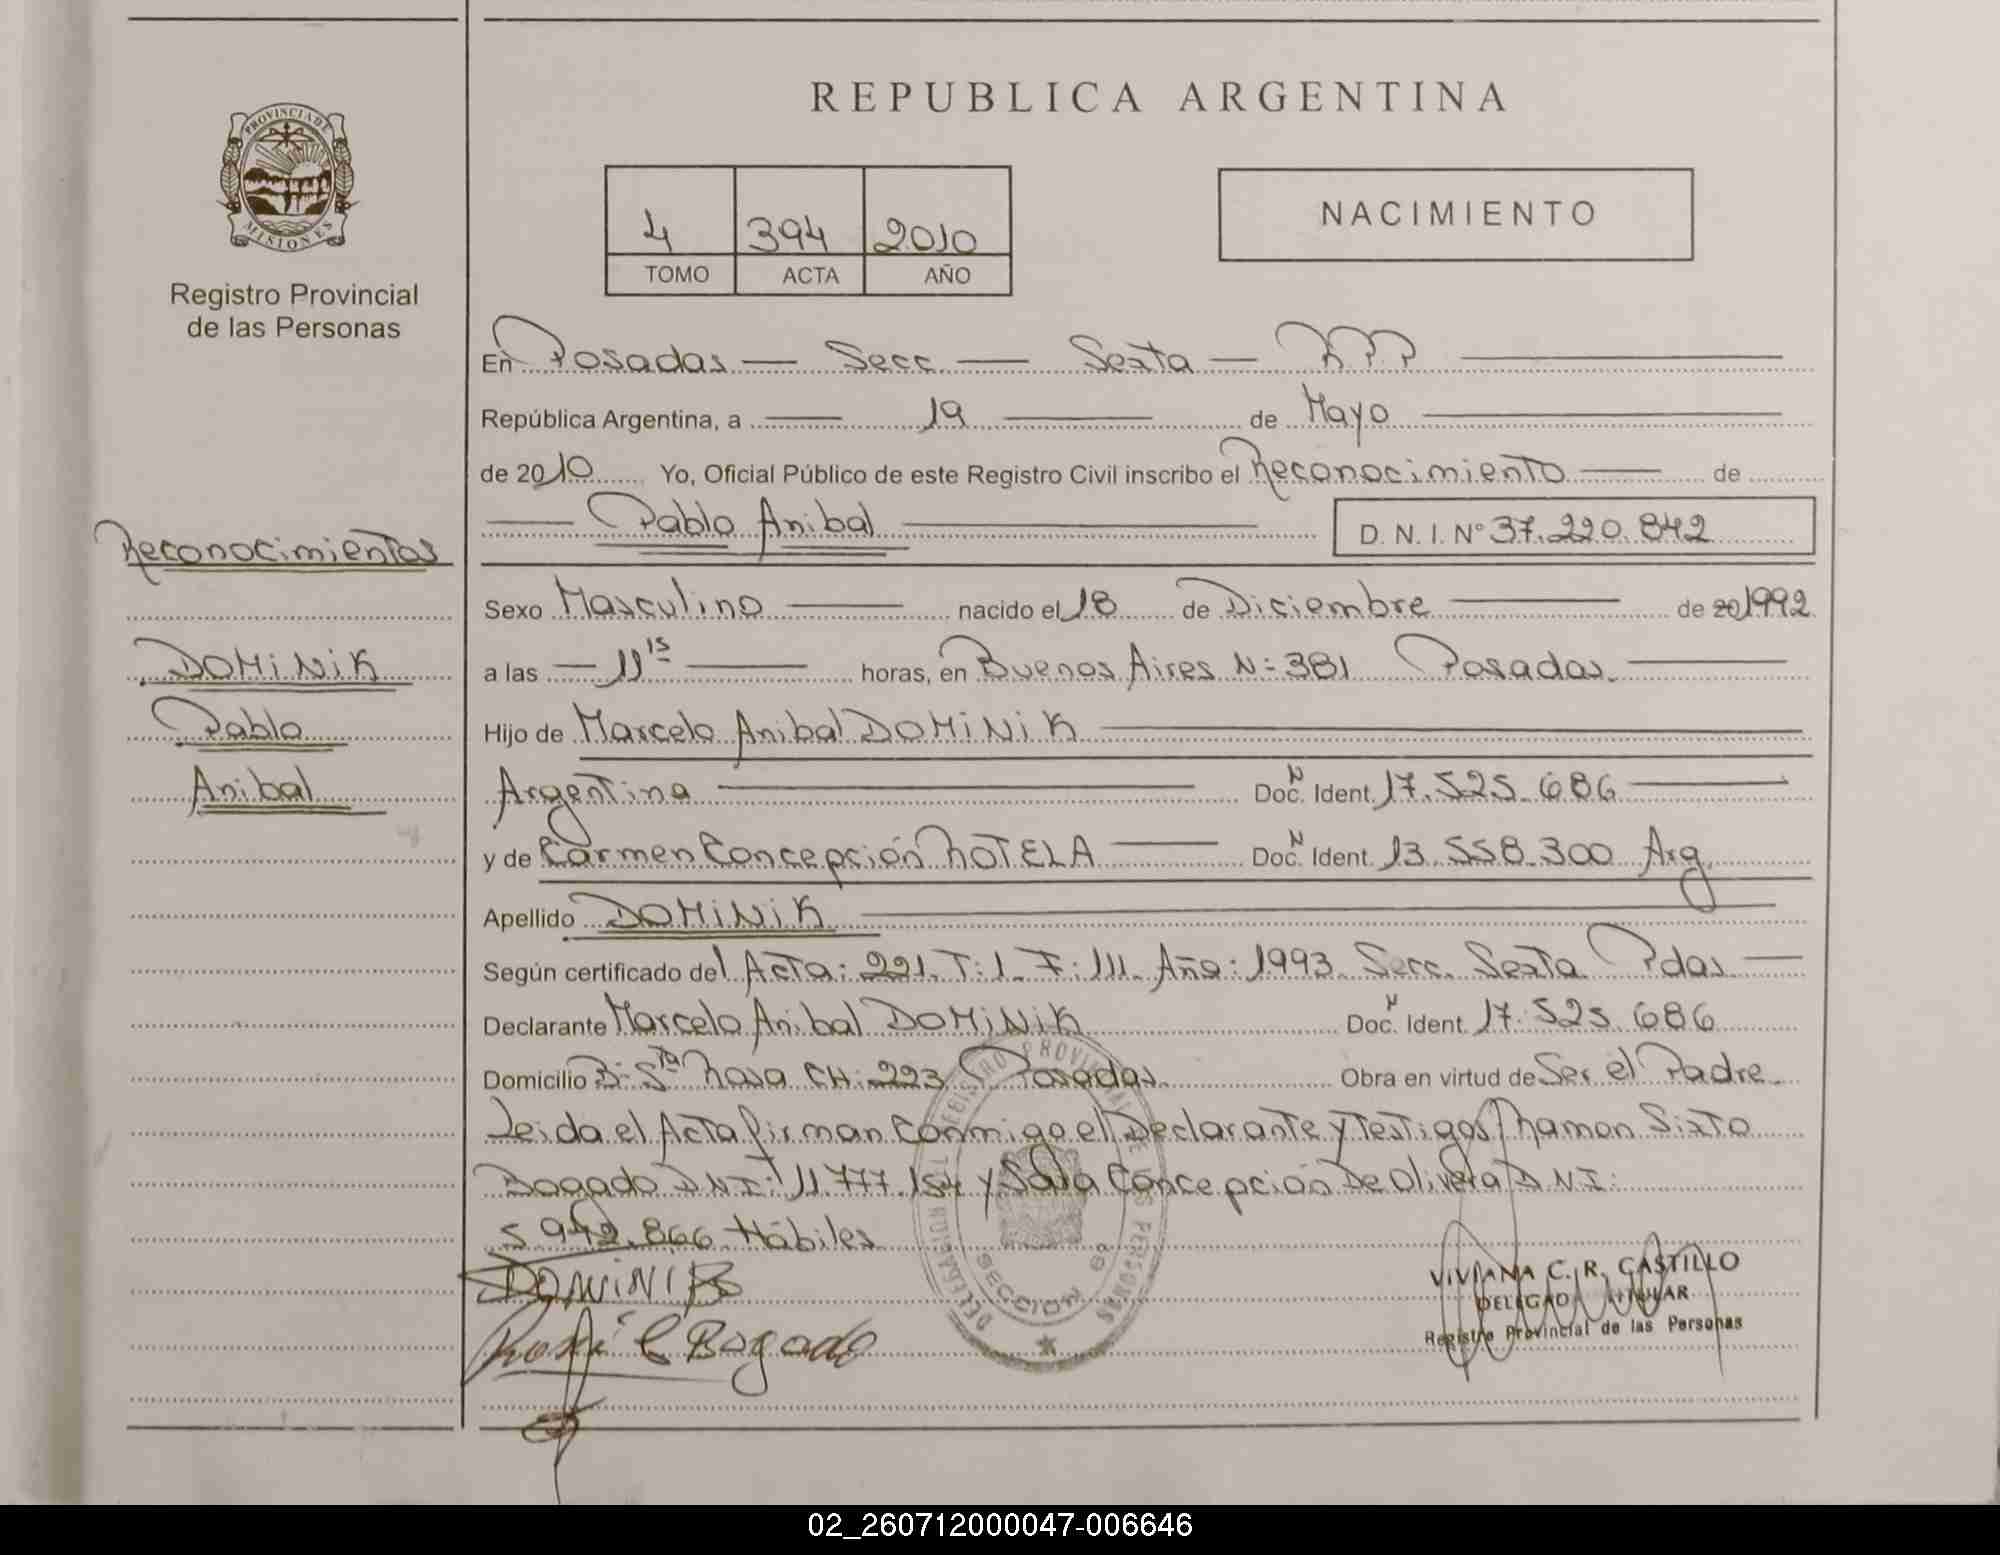 REPUBLICA ARGENTINA
PROVINCIA DE
MISIONES
Registro Provincial
de las Personas
4 394 2010
TOMO ACTA AÑO
NACIMIENTO
En Posadas — Secc. — Sexta — RPP
República Argentina, a — 19 — de Mayo
de 2010 Yo, Oficial Público de este Registro Civil inscribo el Reconocimiento — de
— Pablo Anibal — D. N. I. Nº 37.220.842
Reconocimientos
DOMINIK
Pablo
Anibal
Sexo Masculino — nacido el 18 de Diciembre — de 20 1992
a las — 11 15 — horas, en Buenos Aires N: 381 Posadas. —
Hijo de Marcelo Anibal DOMINIK —
Argentina — Doc. N Ident. 17.525.686 —
y de Carmen Concepción ROTELA — Doc. N Ident. 13.558.300 Arg.
Apellido DOMINIK —
Según certificado del Acta: 221. T: 1. F: 111. Año: 1993. Secc. Sexta Pdas —
Declarante Marcelo Anibal DOMINIK Doc. N Ident. 17.525.686
Domicilio B: Sta Rosa CH: 223 Posadas. Obra en virtud de Ser el Padre.
Leida el Acta firman conmigo el Declarante y Testigos Ramon Sixto
Bogado D.N.I: 11.777.154 y Sara Concepción De Olivera D.N.I:
5.942.866 Hábiles
DOMINIK
Bogado
DELEGACION DEL REGISTRO PROVINCIAL DE LAS PERSONAS
SECCION 6ª
VIVIANA C. R. CASTILLO
DELEGADA TITULAR
Registro Provincial de las Personas
02_260712000047-006646